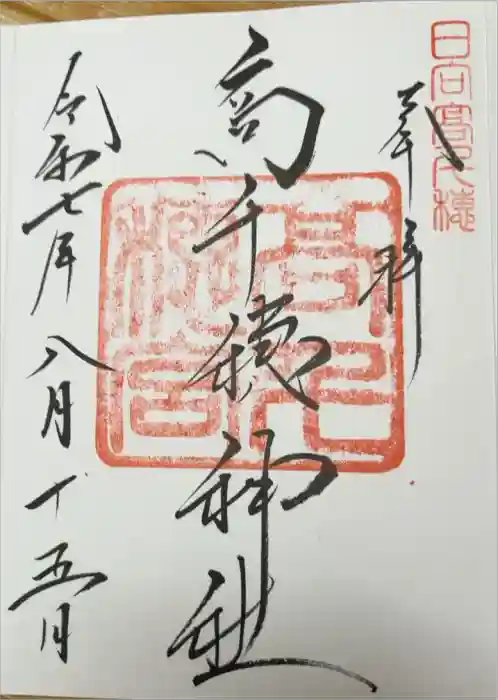 日向高千穂
奉拝
高千穂神社
令和七年八月十五日